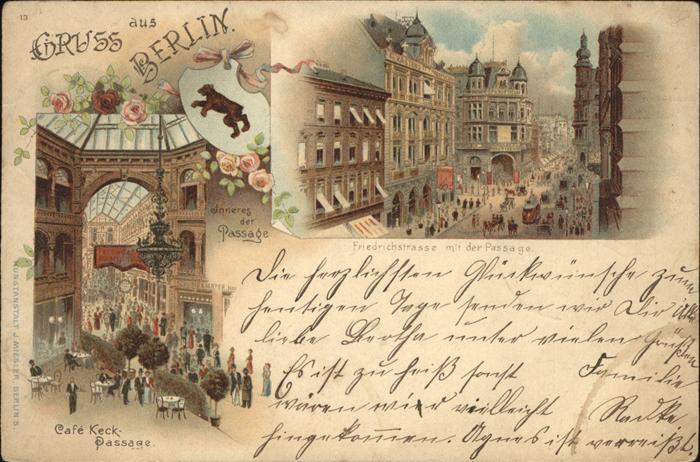 13
GRUSS aus BERLIN.
Inneres
der
Passage
Friedrichstrasse mit der Passage.
KUNSTANSTALT J. MIESLER, BERLIN S.
Café Keck-
Passage.
Die herzlichsten Glückwünsche zum
heutigen Tage senden wir Dir
liebe Bertha unter vielen Grüßen
Es ist zu heiß sonst Familie
wären wir vielleicht Radke
hingekommen. Agnes ist verreißt.